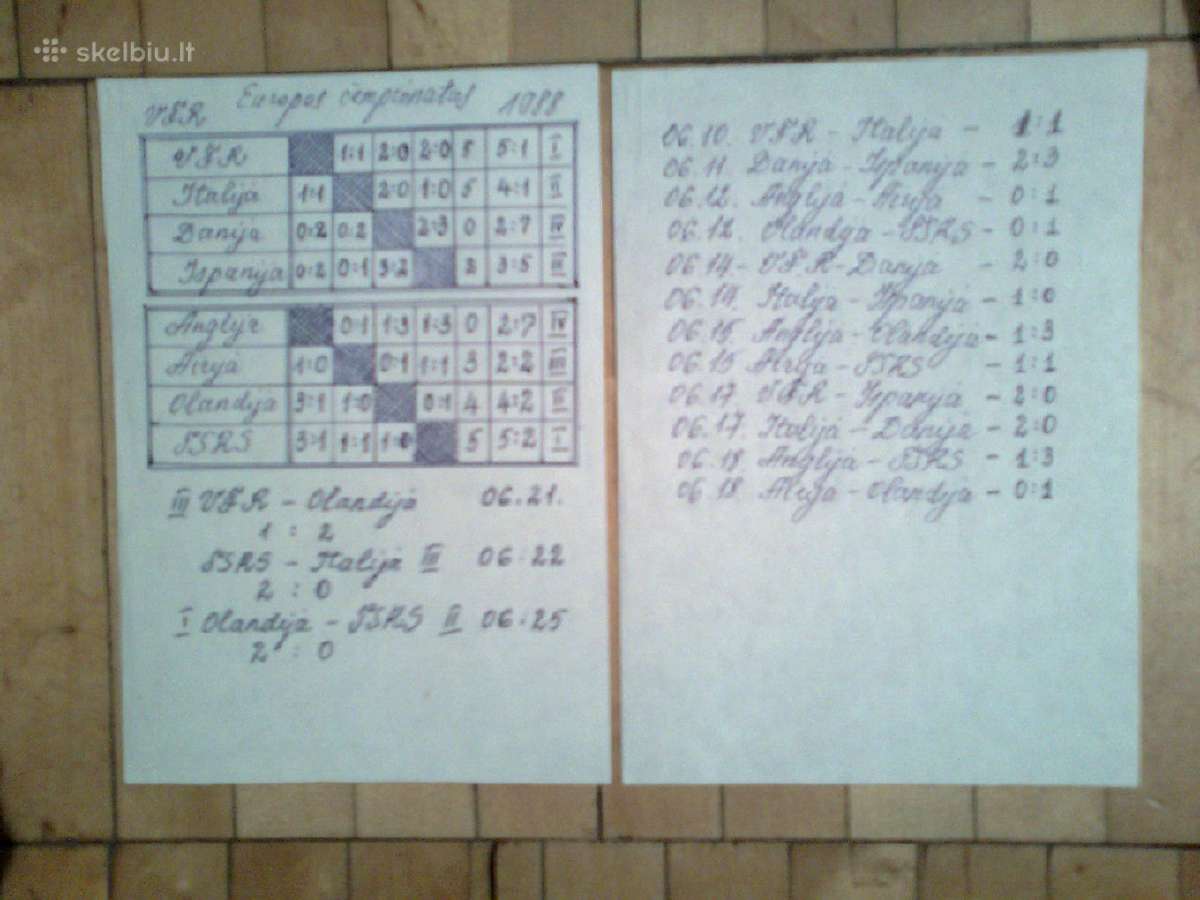 skelbiu.lt
VFR Europos čempionatas 1988
VFR 1:1 2:0 2:0 5 5:1 I
Italija 1:1 2:0 1:0 5 4:1 II
Danija 0:2 0:2 2:3 0 2:7 IV
Ispanija 0:2 0:1 3:2 2 3:5 III
Anglija 0:1 1:3 1:3 0 2:7 IV
Airija 1:0 0:1 1:1 3 2:2 III
Olandija 3:1 1:0 0:1 4 4:2 II
TSRS 3:1 1:1 1:0 5 5:2 I
III VFR - Olandija 06.21.
1 : 2
TSRS - Italija III 06:22
2 : 0
I Olandija - TSRS II 06:25
2 : 0
06.10. VFR - Italija - 1:1
06.11. Danija - Ispanija - 2:3
06.12. Anglija - Airija - 0:1
06.12. Olandija - TSRS - 0:1
06.14 - VFR - Danija - 2:0
06.14. Italija - Ispanija - 1:0
06.15. Anglija - Olandija - 1:3
06.15 Airija - TSRS - 1:1
06.17. VFR - Ispanija - 2:0
06.17. Italija - Danija - 2:0
06.18. Anglija - TSRS - 1:3
06.18. Airija - Olandija - 0:1